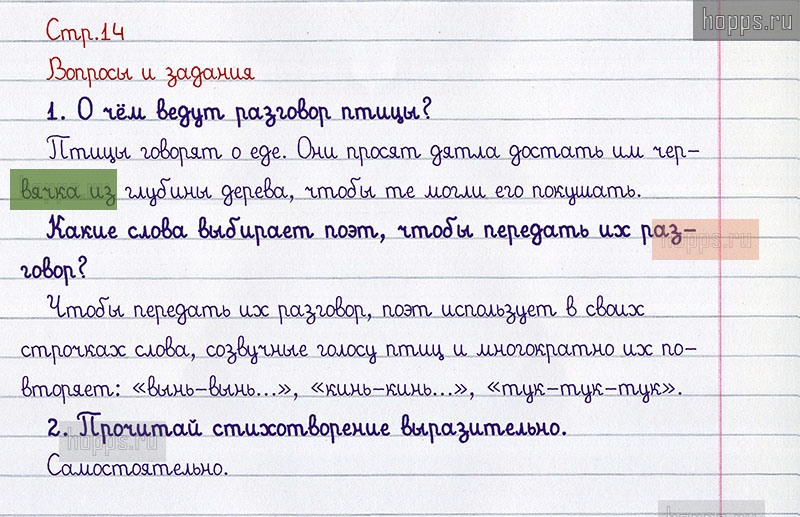 hopps.ru
Стр.14
Вопросы и задания
1. О чём ведут разговор птицы?
Птицы говорят о еде. Они просят дятла достать им чер-
вячка из глубины дерева, чтобы те могли его покушать.
Какие слова выбирает поэт, чтобы передать их раз-
hopps.ru
говор?
Чтобы передать их разговор, поэт использует в своих
строчках слова, созвучные голосу птиц и многократно их по-
вторяет: «вынь-вынь...», «кинь-кинь...», «тук-тук-тук».
2. Прочитай стихотворение выразительно.
hopps.ru
Самостоятельно.